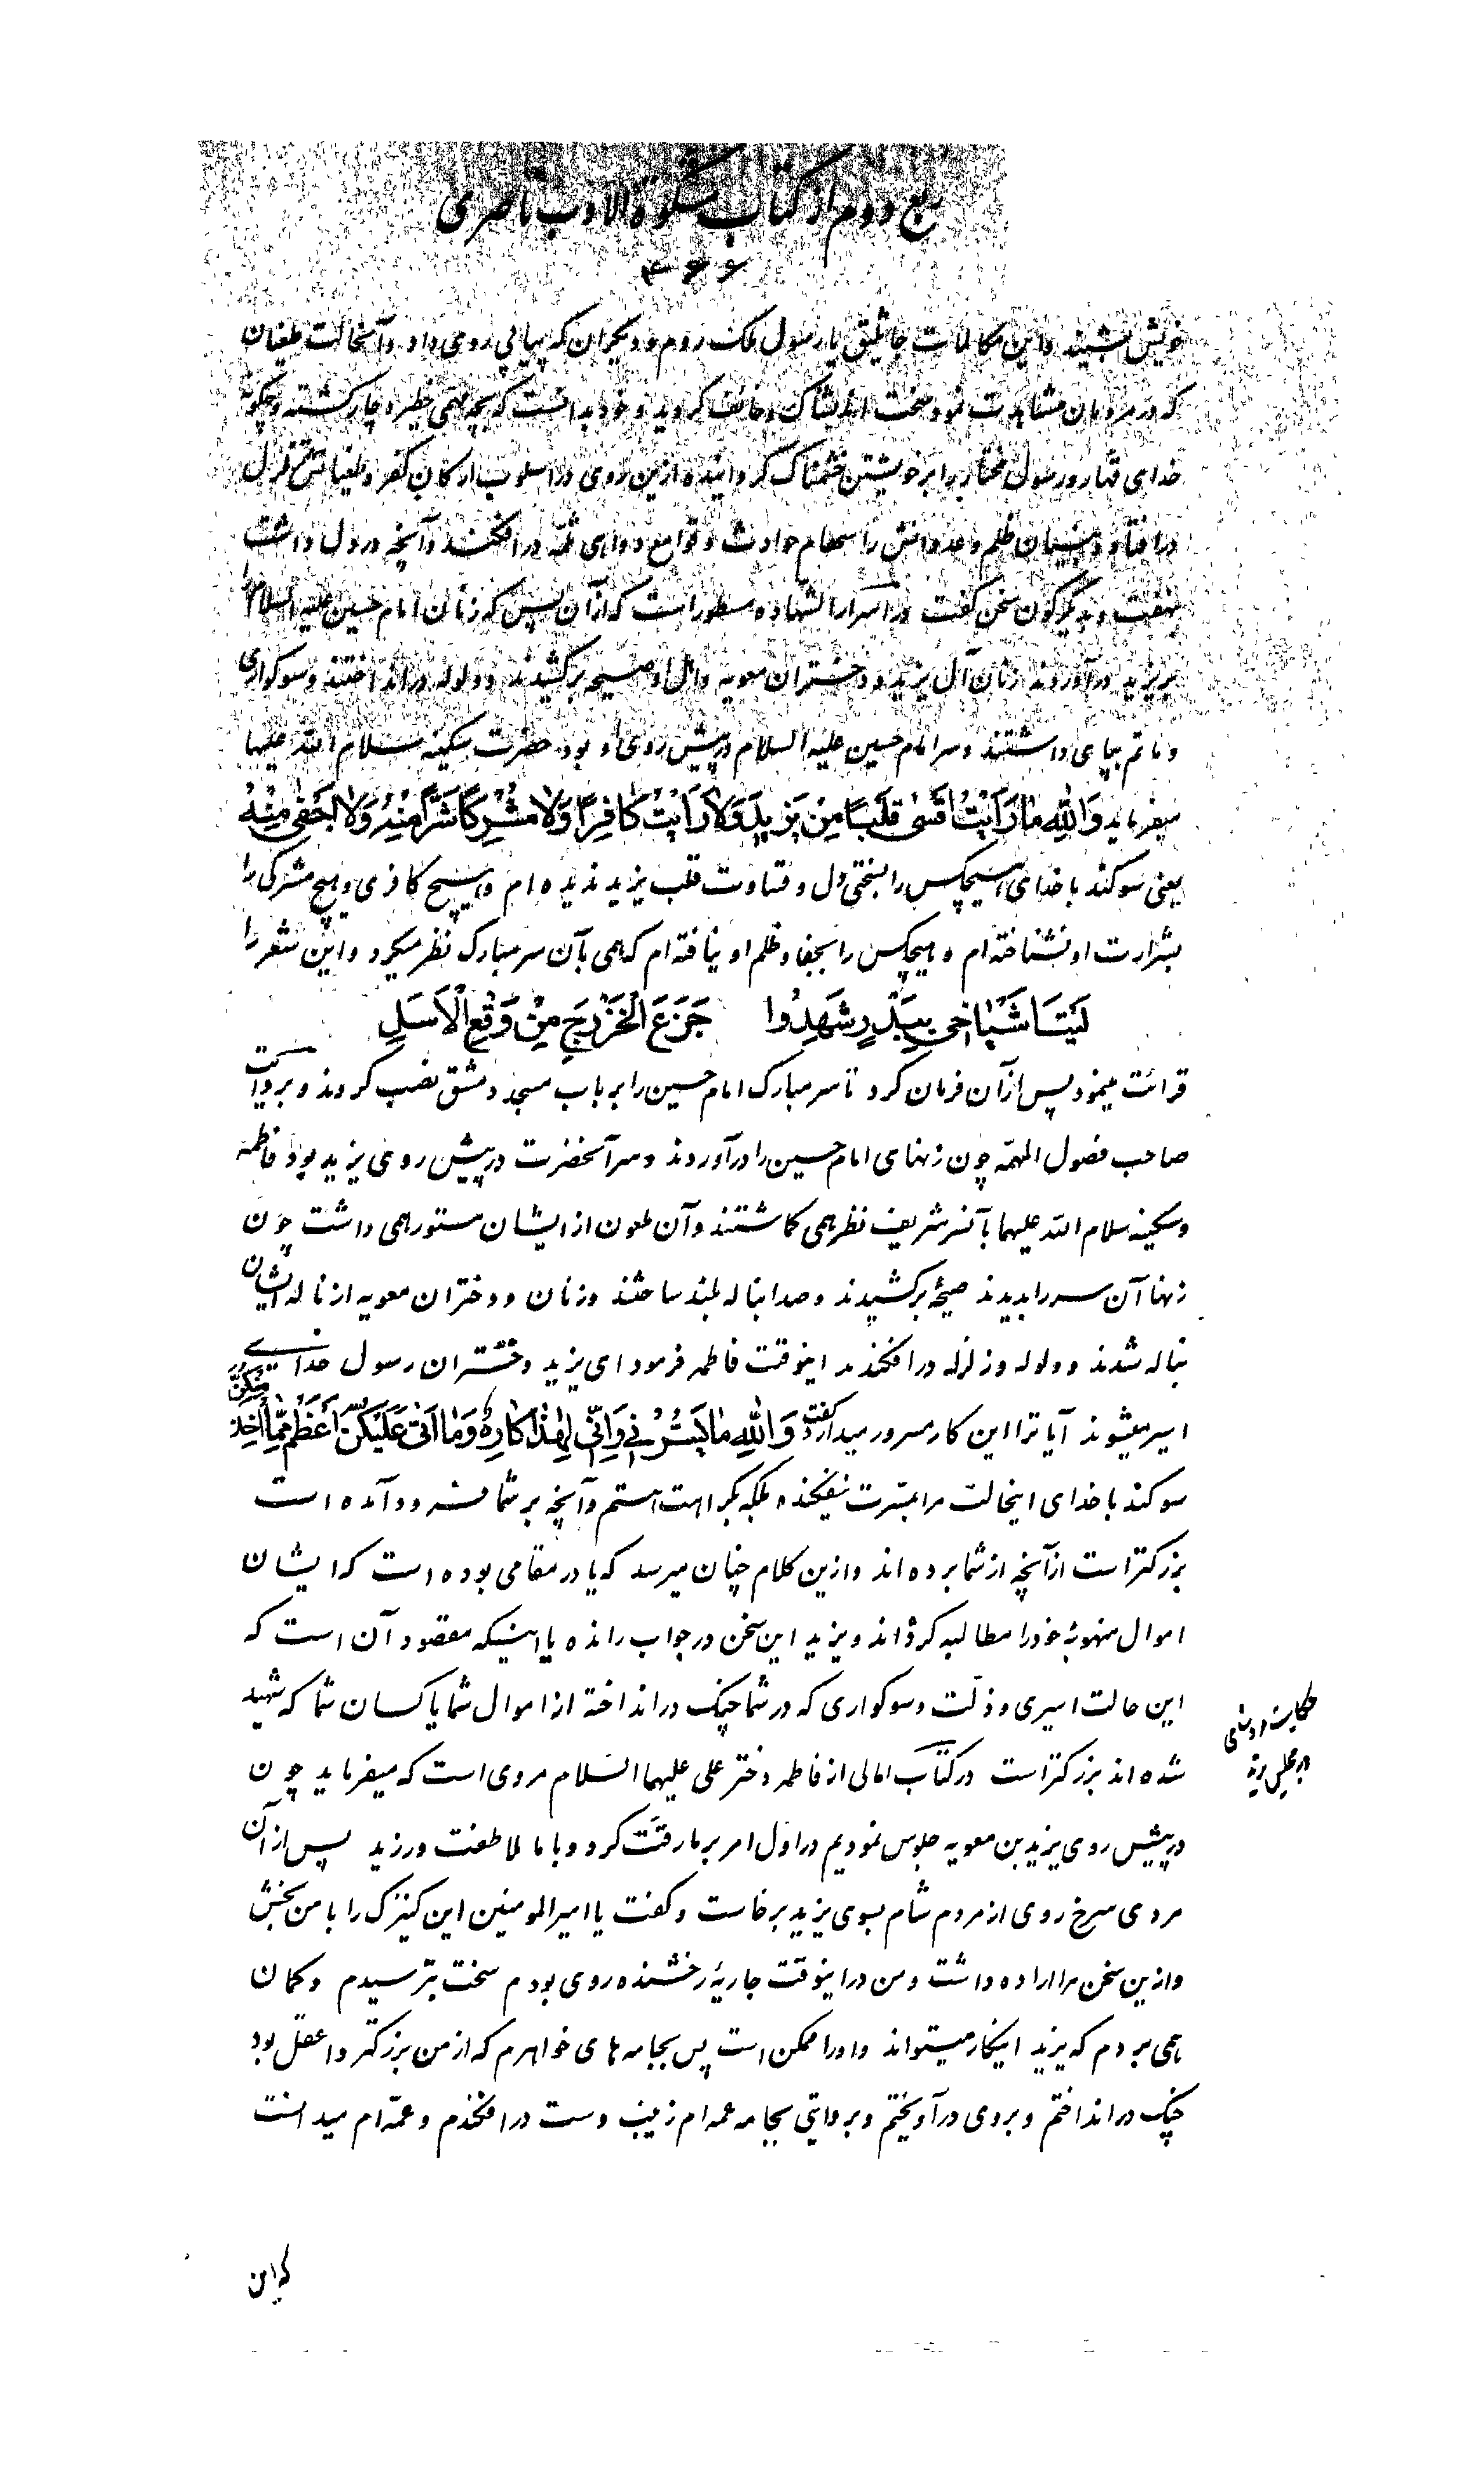 ربع دوم از کتاب مشکوة الادب ناصری
۴۶۶
خویش بشنید و این مکالمات جاثلیق یا رسول ملک روم و دیگران که پیاپی روی داد و آنحالت طغیان
که در مردمان مشاهدت نمود سخت اندیشناک و خائف گردید و خود بدانست که بچه مهمی خطیر دچار گشته و چگونه
خدای قهار و رسول مختار را بر خویشتن خشمناک گردانیده ازین روی در اسلوب ارکان کفر و طغیانش تزلزل
در افتاد و بنیان ظلم و عدوانش را سهام حوادث و قوامع دواهی ثلمه در افکند و آنچه در دل داشت
نهفت و دیگرگون سخن گفت در اسرار الشهاده مسطور است که از آن پس که زنان امام حسین علیه السلام را
بر یزید درآوردند زنان آل یزید و دختران معویه و اهل او صیحه برکشیدند و ولوله در انداختند و سوکواری
و ماتم بپای داشتند و سر امام حسین علیه السلام در پیش روی او بود حضرت سکینه سلام الله علیها
میفرماید وَاللهِ ما رَاَیْتُ اَقْسی قَلْبًا مِنْ یَزیدَ وَلا رَاَیْتُ کافِرًا وَلا مُشْرِکًا شَرًّا مِنْهُ وَلا اَجْفی مِنْهُ
یعنی سوکند با خدای هیچکس را بسختی دل و قساوت قلب یزید ندیده ام و هیچ کافری و هیچ مشرکی را
بشرارت او نشناخته ام و هیچکس را بجفا و ظلم او نیافته ام که همی بآن سر مبارک نظر میکرد و این شعر را
لَیْتَ اَشْیاخی بِبَدْرٍ شَهِدُوا جَزَعَ الْخَزْرَجِ مِنْ وَقْعِ الْاَسَلِ
قرائت مینمود پس از آن فرمان کرد تا سر مبارک امام حسین را بر باب مسجد دمشق نصب کردند و بروایت
صاحب فصول المهمّه چون زنهای امام حسین را درآوردند و سر آنحضرت در پیش روی یزید بود فاطمه
و سکینه سلام الله علیهما بآنسر شریف نظر همی کماشتند و آن ملعون از ایشان مستور همی داشت چون
زنها آن سر را بدیدند صیحه برکشیدند و صدا بناله بلند ساختند و زنان و دختران معویه از ناله ایشان
بناله شدند و ولوله و زلزله در افکندند اینوقت فاطمه فرمود ای یزید دختران رسول خدای
اسیر میشوند آیا ترا این کار مسرور میدارد گفت وَاللهِ ما یَسُرُّنی وَاِنّی لِهذا کارِهٌ وَما اَتی عَلَیْکُنَّ اَعْظَمُ مِمّا اُخِذَ مِنْکُنَّ
سوکند با خدای اینحالت مرا بمسرت نیفکنده بلکه بکراهت هستم و آنچه بر شما فرود آمده است
بزرکتر است از آنچه از شما برده اند و ازین کلام چنان میرسد که یا در مقامی بوده است که ایشان
اموال منهوبه خود را مطالبه کرده اند و یزید این سخن در جواب رانده یا اینکه مقصود آن است که
این حالت اسیری و ذلّت و سوکواری که در شما چنک در انداخته از اموال شما یا کسان شما که شهید
شده اند بزرکتر است در کتاب امالی از فاطمه دختر علی علیهما السلام مروی است که میفرماید چون
در پیش روی یزید بن معویه جلوس نمودیم در اوّل امر بر ما رقّت کرد و با ما ملاطفت ورزید پس از آن
مردی سرخ روی از مردم شام بسوی یزید برخاست و گفت یا امیر المومنین این کنیزک را با من بخش
و ازین سخن مرا اراده داشت و من در اینوقت جاریهٔ رخشنده روی بودم سخت بترسیدم و کمان
همی بردم که یزید اینکار میتواند و او را ممکن است پس بجامه های خواهرم که از من بزرکتر و اعقل بود
چنک در انداختم و بروی درآویختم و بروایتی بجامه عمه ام زینب دست در افکندم و عمّه ام میدانست
حکایت مرد شامی
در مجلس یزید
که این